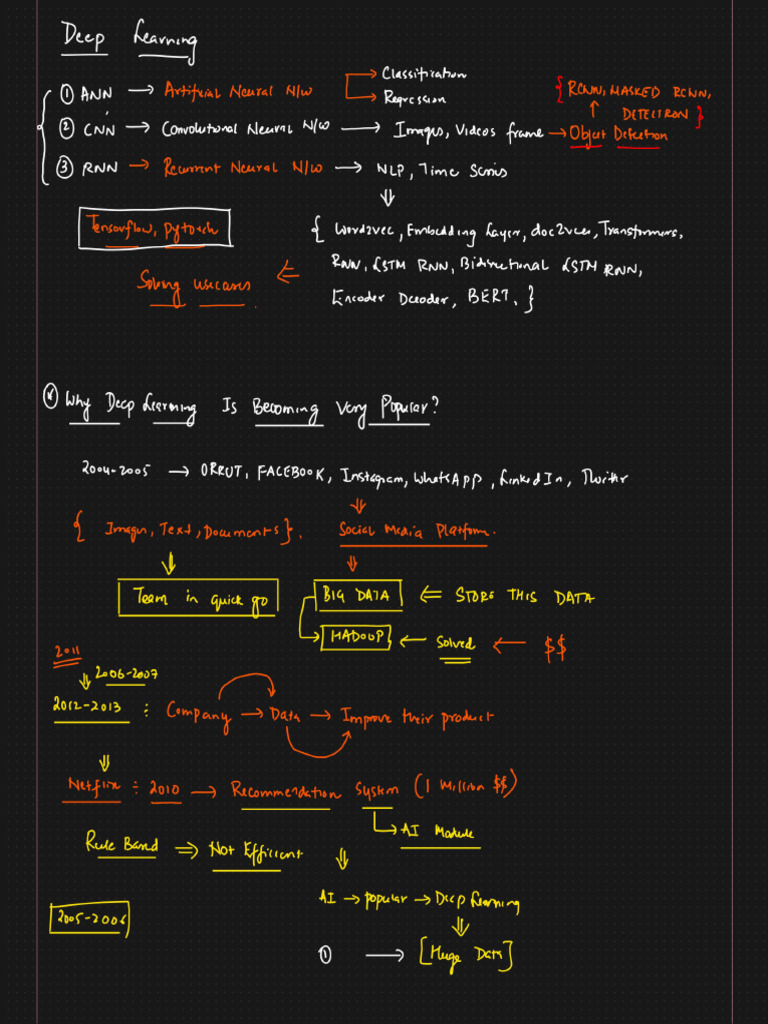 Deep Learning
① ANN → Artificial Neural N/w → Classification
→ Regression
② CNN → Convolutional Neural N/w → Images, Videos frame → Object Detection
{RCNN, MASKED RCNN,
DETECTRON}
③ RNN → Recurrent Neural N/w → NLP, Time Series
Tensorflow, pytorch
{ Word2vec, Embedding Layer, doc2vec, Transformers,
RNN, LSTM RNN, Bidirectional LSTM RNN,
Encoder Decoder, BERT. }
Solving usecases
Why Deep Learning Is Becoming Very Popular?
2004-2005 → ORKUT, FACEBOOK, Instagram, WhatsApp, LinkedIn, Twitter
{ Images, Text, Documents }.
Social Media Platform.
Team in quick go
BIG DATA ⇐ STORE THIS DATA
HADOOP ← Solved ← $$
2011
2006-2007
2012-2013 : Company → Data → Improve their product
Netflix ÷ 2010 → Recommendation System (1 Million $$)
AI Module
Rule Based ⇒ Not Efficient
AI → popular → Deep Learning
2005-2006
① → [Huge Data]